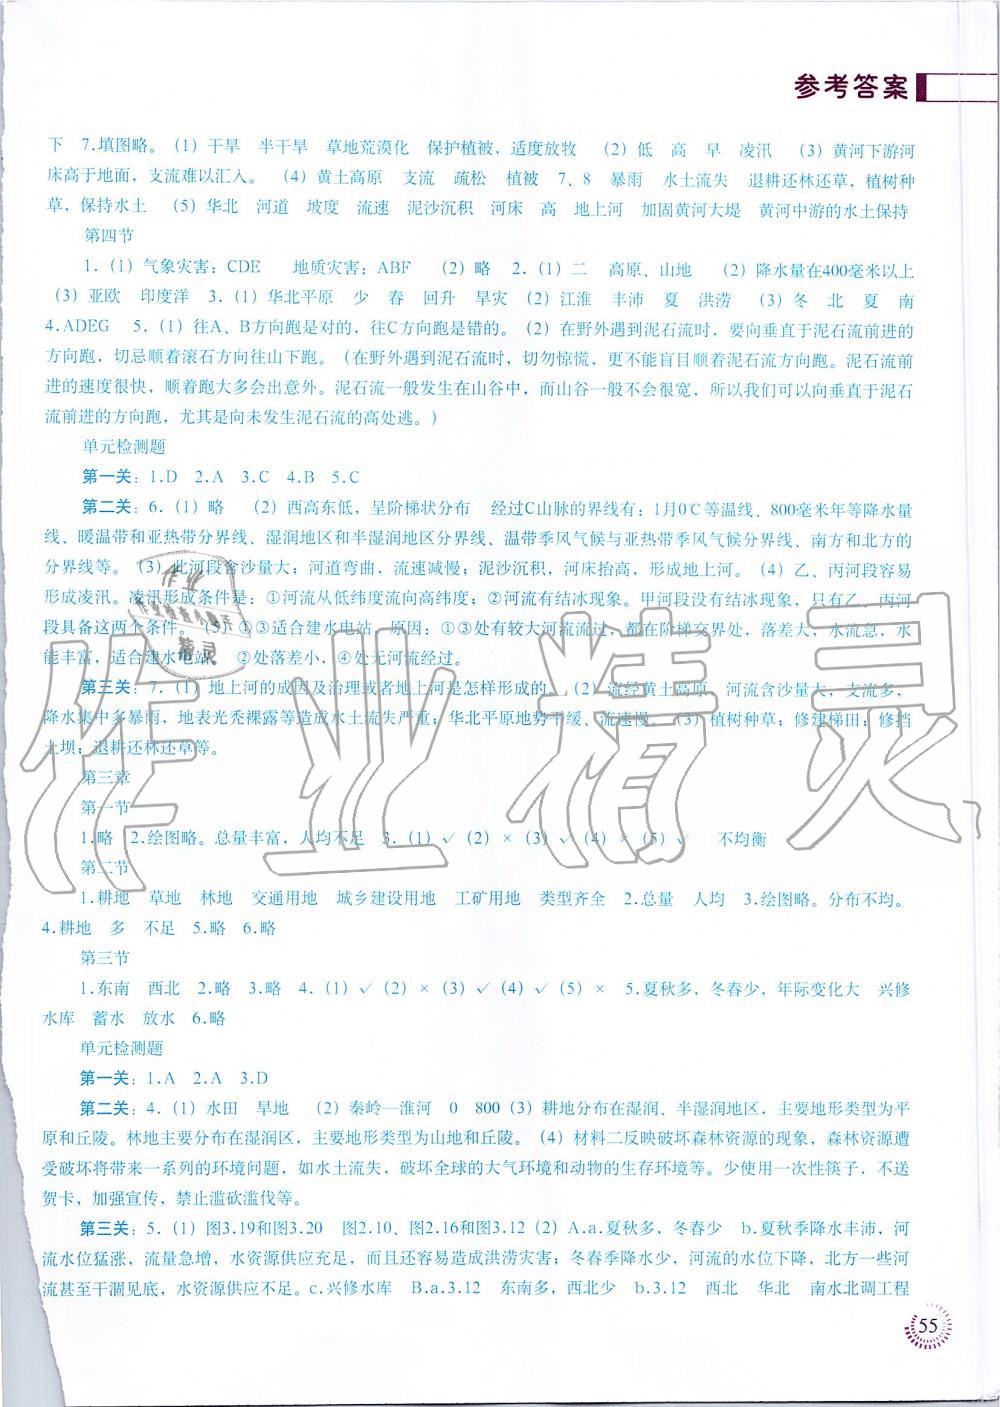 参考答案
下 7.填图略。(1)干旱 半干旱 草地荒漠化 保护植被，适度放牧 (2)低 高 早 凌汛 (3)黄河下游河
床高于地面，支流难以汇入。 (4)黄土高原 支流 疏松 植被 7、8 暴雨 水土流失 退耕还林还草，植树种
草，保持水土 (5)华北 河道 坡度 流速 泥沙沉积 河床 高 地上河 加固黄河大堤 黄河中游的水土保持
第四节
1.(1)气象灾害：CDE 地质灾害：ABF (2)略 2.(1)二 高原、山地 (2)降水量在400毫米以上
(3)亚欧 印度洋 3.(1)华北平原 少 春 回升 旱灾 (2)江淮 丰沛 夏 洪涝 (3)冬 北 夏 南
4.ADEG 5.(1)往A、B方向跑是对的，往C方向跑是错的。(2)在野外遇到泥石流时，要向垂直于泥石流前进的
方向跑，切忌顺着滚石方向往山下跑。(在野外遇到泥石流时，切勿惊慌，更不能盲目顺着泥石流方向跑。泥石流前
进的速度很快，顺着跑大多会出意外。泥石流一般发生在山谷中，而山谷一般不会很宽，所以我们可以向垂直于泥石
流前进的方向跑，尤其是向未发生泥石流的高处逃。)
单元检测题
第一关：1.D 2.A 3.C 4.B 5.C
第二关：6.(1)略 (2)西高东低，呈阶梯状分布 经过C山脉的界线有：1月0℃等温线、800毫米年等降水量
线、暖温带和亚热带分界线、湿润地区和半湿润地区分界线、温带季风气候与亚热带季风气候分界线、南方和北方的
分界线等。 (3)此河段含沙量大；河道弯曲，流速减慢；泥沙沉积，河床抬高，形成地上河。(4)乙、丙河段容易
形成凌汛。凌汛形成条件是：①河流从低纬度流向高纬度；②河流有结冰现象。甲河段没有结冰现象，只有乙、丙河
段具备这两个条件。(5)①③适合建水电站，原因：①③处有较大河流流过，都在阶梯交界处，落差大，水流急，水
能丰富，适合建水电站。 ②处落差小，④处无河流经过。
第三关：7.(1)地上河的成因及治理或者地上河是怎样形成的。(2)流经黄土高原 河流含沙量大，支流多，
降水集中多暴雨，地表光秃裸露等造成水土流失严重；华北平原地势平缓、流速慢。(3)植树种草；修建梯田；修挡
土坝；退耕还林还草等。
第三章
第一节
1.略 2.绘图略。总量丰富，人均不足 3.(1)√ (2)× (3)√ (4)× (5)√ 不均衡
第二节
1.耕地 草地 林地 交通用地 城乡建设用地 工矿用地 类型齐全 2.总量 人均 3.绘图略。分布不均。
4.耕地 多 不足 5.略 6.略
第三节
1.东南 西北 2.略 3.略 4.(1)√ (2)× (3)√ (4)√ (5)× 5.夏秋多，冬春少，年际变化大 兴修
水库 蓄水 放水 6.略
单元检测题
第一关：1.A 2.A 3.D
第二关：4.(1)水田 旱地 (2)秦岭—淮河 0 800 (3)耕地分布在湿润、半湿润地区，主要地形类型为平
原和丘陵。林地主要分布在湿润区，主要地形类型为山地和丘陵。(4)材料二反映破坏森林资源的现象，森林资源遭
受破坏将带来一系列的环境问题，如水土流失，破坏全球的大气环境和动物的生存环境等。少使用一次性筷子，不送
贺卡，加强宣传，禁止滥砍滥伐等。
第三关：5.(1)图3.19和图3.20 图2.10、图2.16和图3.12 (2)A.a.夏秋多，冬春少 b.夏秋季降水丰沛，河
流水位猛涨，流量急增，水资源供应充足，而且还容易造成洪涝灾害；冬春季降水少，河流的水位下降，北方一些河
流甚至干涸见底，水资源供应不足。c.兴修水库 B.a.3.12 东南多，西北少 b.3.12 西北 华北 南水北调工程
55
作业精灵